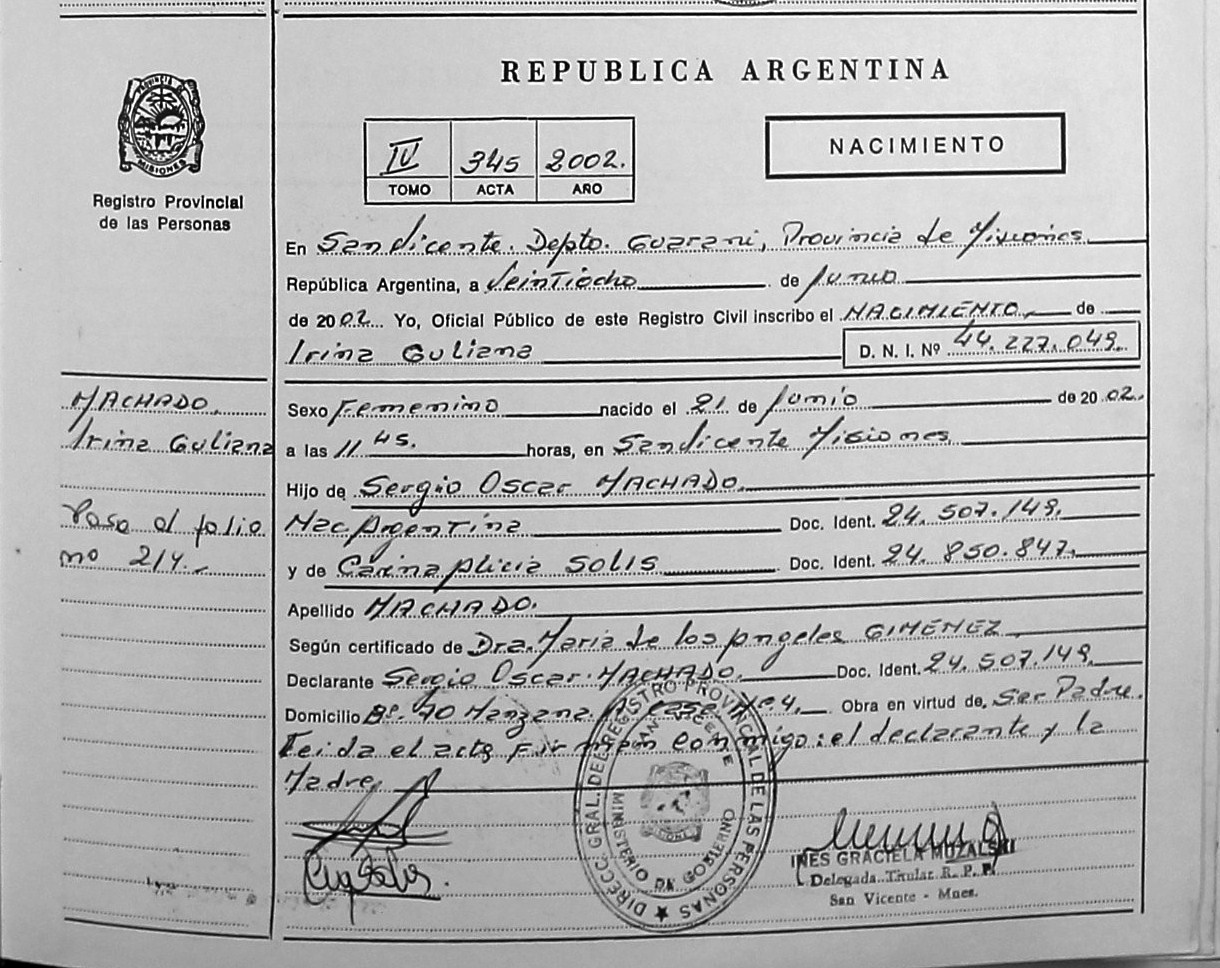 REPUBLICA ARGENTINA
PROVINCIA DE
MISIONES
Registro Provincial
de las Personas
IV 345 2002.
TOMO ACTA AÑO
NACIMIENTO
En San Vicente. Depto. Guarani, Provincia de Misiones
República Argentina, a Veintiocho de Junio
de 2002. Yo, Oficial Público de este Registro Civil inscribo el NACIMIENTO de
Irina Guliana D. N. I. Nº 44.227.049.
MACHADO.
Irina Guliana
Paso al folio
nº 214.
Sexo Femenino nacido el 21 de Junio de 2002.
a las 11 45. horas, en San Vicente Misiones
Hijo de Sergio Oscar MACHADO.
Nac. Argentina Doc. Ident. 24.507.149.
y de Carina Alicia SOLIS Doc. Ident. 24.850.847.
Apellido MACHADO.
Según certificado de Dra. Maria de los Angeles GIMENEZ
Declarante Sergio Oscar MACHADO. Doc. Ident. 24.507.149.
Domicilio Bº 70 Manzana casa Nº 4. Obra en virtud de Ser Padre.
Leida el acta Firman conmigo: el declarante y la
Madre
DIRECC. GRAL. DEL REGISTRO PROVINCIAL DE LAS PERSONAS
SAN VICENTE
MINISTERIO DE GOBIERNO
INES GRACIELA MUZALSKI
Delegada Titular R. P. P.
San Vicente - Mnes.